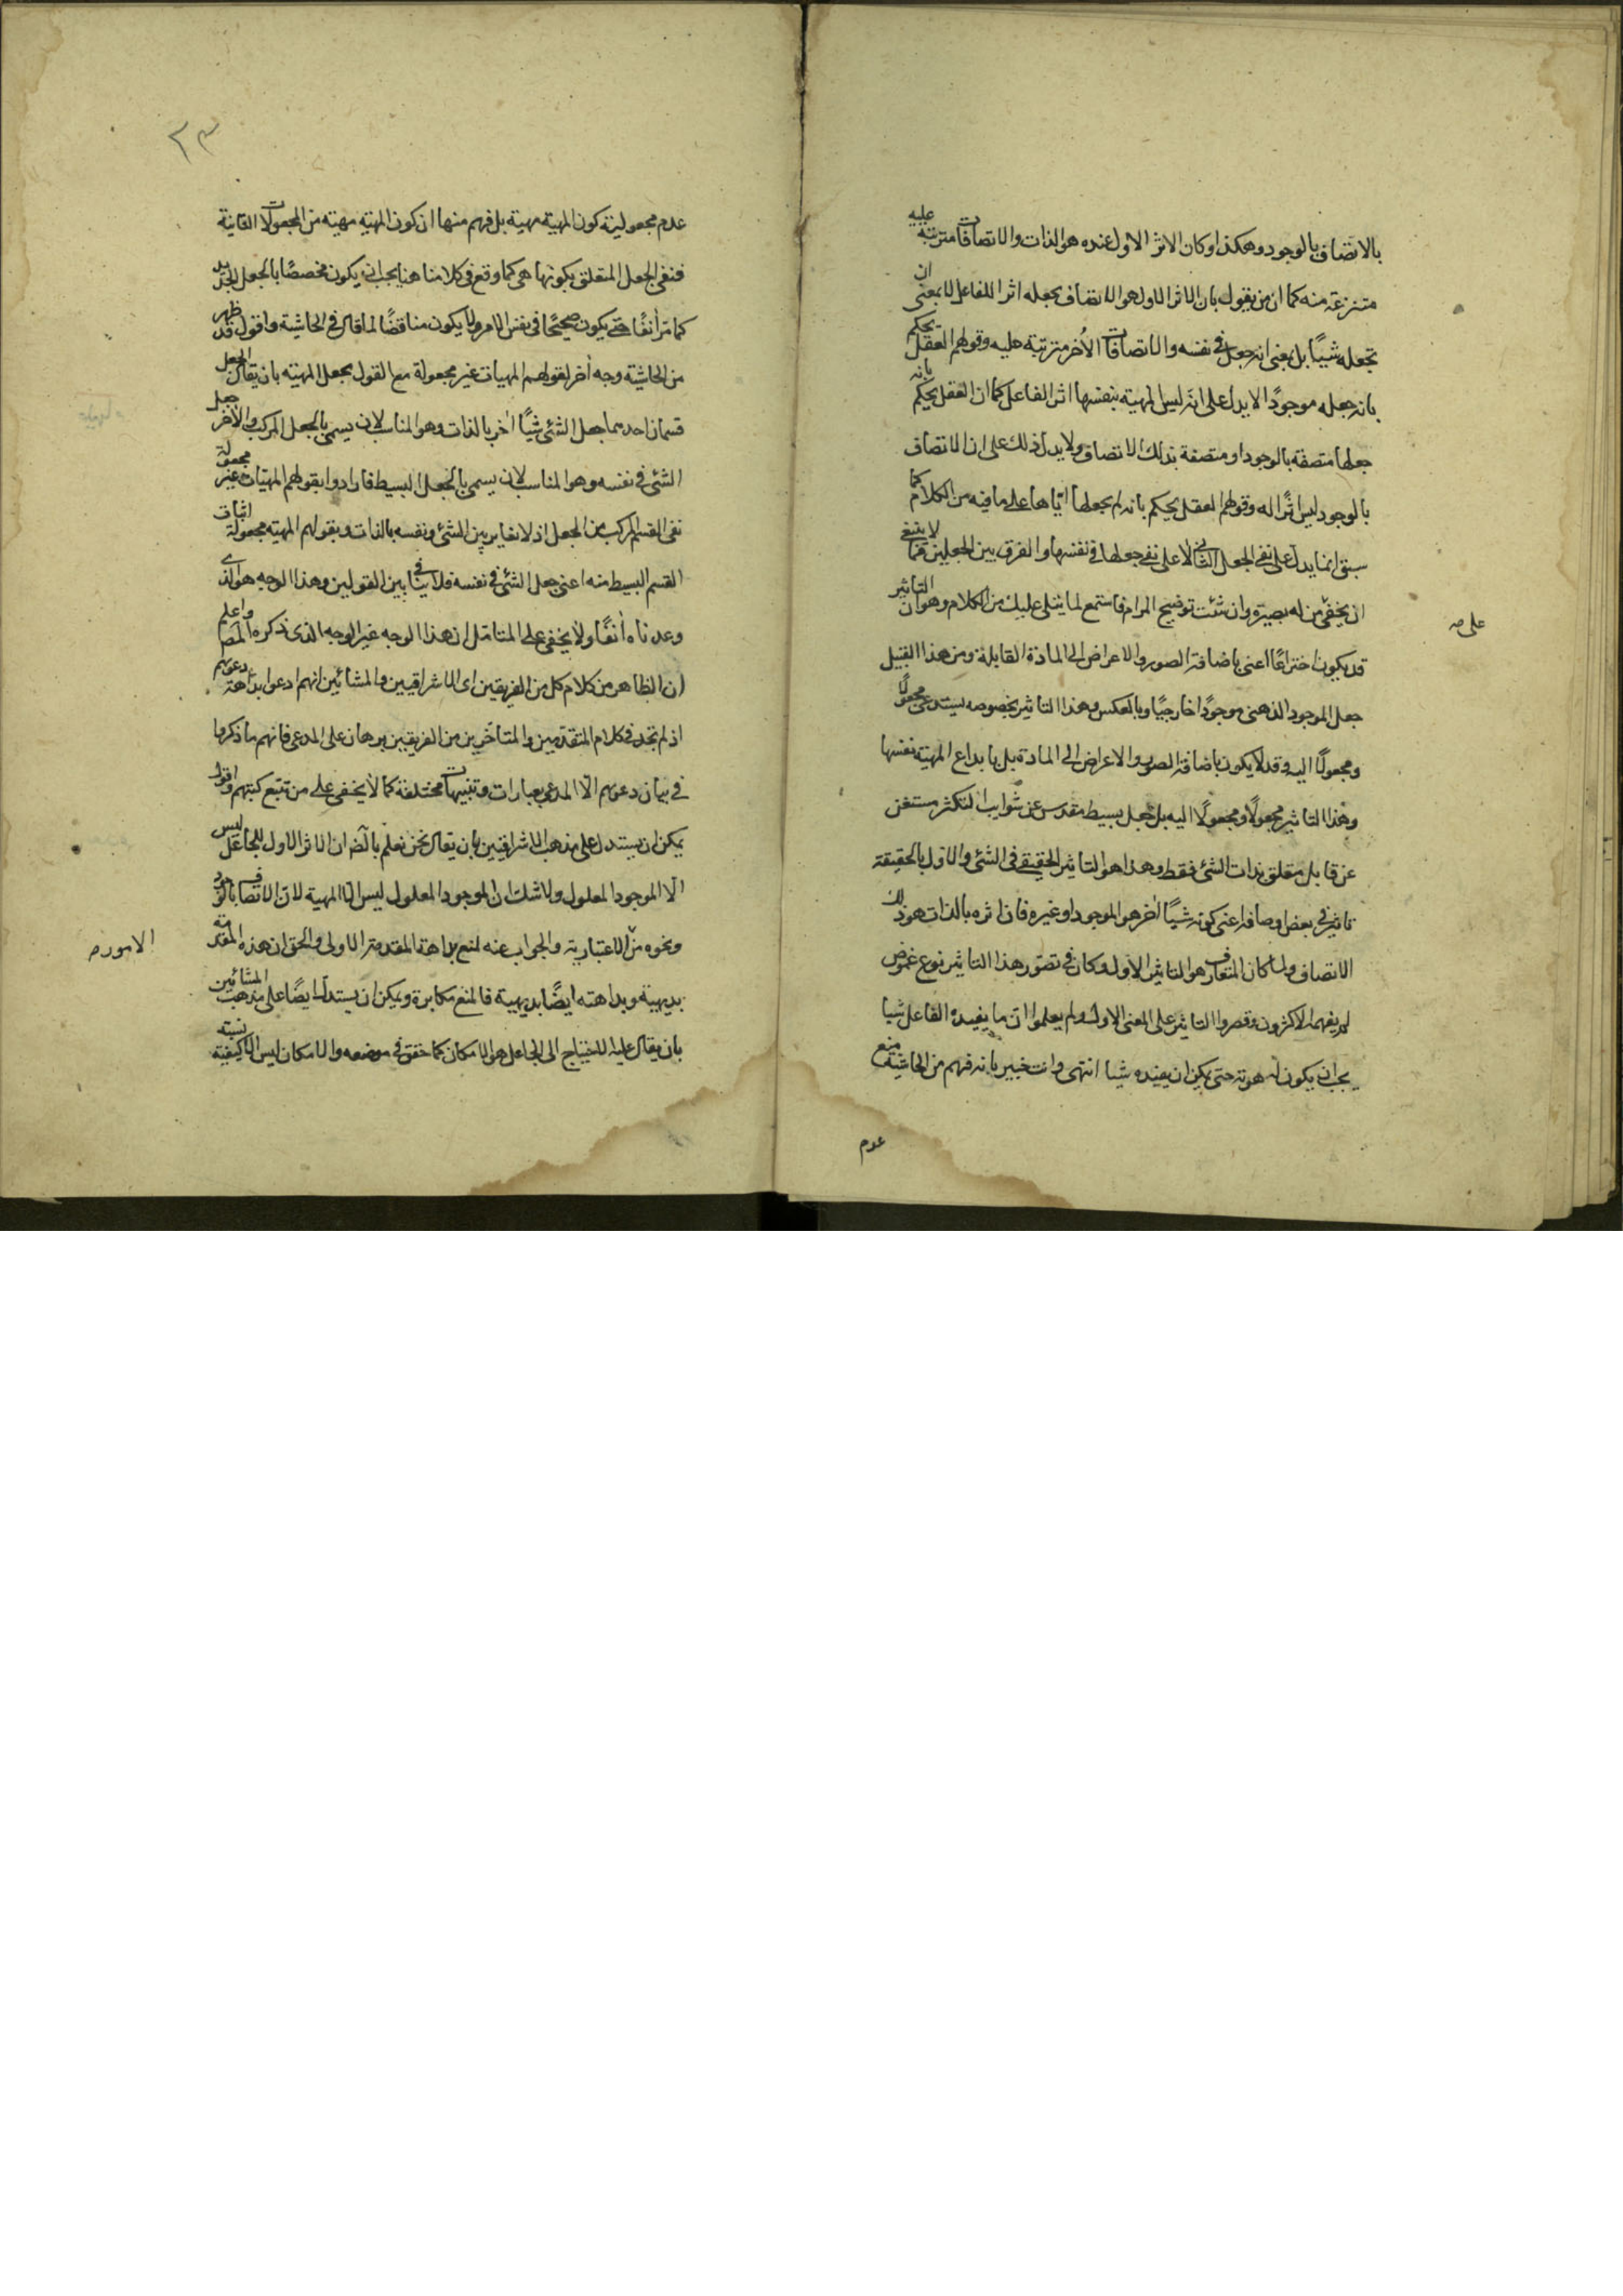 بالاتصاف بالوجود وهكذا وكان الاثر الاول عنده هو الذات والاتصافات مترتبة عليه
متنزعة منه كما ان من يقول بان الاثر الاول هو الاتصاف يجعله اثرا للفاعل لا بمعنى ان
تجعله شيئًا بل بمعنى انه جعل في نفسه والاتصافات الأخر مترتبة عليه وقولهم العقل يحكم
بانه جعله موجودًا لا يدل على انه ليس المهية بنفسها اثر الفاعل كما ان العقل يحكم بانه
جعلها متصفة بالوجود او متصفة بذلك الاتصاف ولا يدل ذلك على ان الاتصاف
بالوجود ليس اثرًا له وقولهم العقل يحكم بانه لم يجعلها ايّاها على ما فيه من الكلام كما
سبق انما يدل على نفي الجعل الثاني لا على نفي جعلها في نفسها والفرق بين الجعلين مما لا ينبغي
ان يخفى من له بصيرة وان شئت توضيح المرام فاستمع لما يتلى عليك من الكلام وهو ان التاثير
على صه
قد يكون اختراعًا اعنى باضافة الصور والاعراض الى المادة القابلة ومن هذا القبيل
جعل الموجود الذهني موجودًا خارجيًا وبالعكس وهذا التاثير بخصوصه يستدعي مجعولًا
ومجعولًا اليه وقد لا يكون باضافة الصور والاعراض الى المادة بل بابداع المهية نفسها
وهذا التاثير مجعولًا ومجعولًا اليه بل جعل بسيط مقدس عن شوايب التكثر مستغن
عن قابل متعلق بذات الشئ فقط وهذا هو التاثير الحقيقي في الشئ والاول بالحقيقة
تاثير في بعض اوصافه اعنى كونه شيئًا اخر هو الموجود او غيره فان اثره بالذات هو ذلك
الاتصاف ولما كان المتعارف هو التاثير الاول وكان في تصور هذا التاثير نوع غموض
لم يفهمه الاكثرون وقصروا التاثير على المعنى الاول ولم يعلموا ان ما يفيده الفاعل شيا
يجب ان يكون له هوية حتى يمكن ان يفيده شيا انتهى وانت خبير بانه فهم من الحاشية منع
عدم
٢٣
عدم مجعولية كون المهية مهية بل فهم منها ان كون المهية مهية من المجعولات الثانية
فنفي الجعل المتعلق بكونها هي كما وقع في كلامنا هنا يجب ان يكون مخصصًا بالجعل الجديد
كما مرّ آنفًا حتى يكون صحيحًا في نفس الامر ولا يكون مناقضًا لما قال في الحاشية واقول قد ظهر
من الحاشية وجه أخر لقولهم المهيات غير مجعولة مع القول بجعل المهية بان يقال الجعل
قسمان احدهما جعل الشئ شيئًا اخر بالذات وهو المناسب لان يسمى بالجعل المركب والاخر جعل
الشئ في نفسه وهو المناسب لان يسمى بالجعل البسيط فارادوا بقولهم المهيات غير مجعولة
نفي القسم المركب من الجعل اذ لا تغاير بين الشئ ونفسه بالذات وبقولهم المهية مجعولة اثبات
القسم البسيط منه اعنى جعل الشئ في نفسه فلا تنافي بين القولين وهذا الوجه هو الذي
وعدناه أنفًا ولا يخفى على المتامل ان هذا الوجه غير الوجه الذى ذكره المص واعلم
ان الظاهر من كلام كل من الفريقين اى الاشراقيين والمشائين انهم ادعوا بداهة دعويهم
اذ لم تجد في كلام المتقدمين والمتاخرين من الفريقين برهان على المدعى فانهم ما ذكروا
في بيان دعويهم الّا المدعى بعبارات وتنبيهات مختلفة كما لا يخفى على من تتبع كتبهم واقول
يمكن ان يستدل على مذهب الاشراقيين بان يقال نحن نعلم بالضـ ان الاثر الاول للجاعل ليس
الّا الموجود المعلول ولا شك ان الموجود المعلول ليس الا المهية لان الاتصاف بالوجود
ونحوه من الاعتبارية والجواب عنه لمنع بداهة المقدمة الاولى والحق ان هذه المقدمة
الامور صه
بديهية وبداهته ايضًا بديهية فالمنع مكابرة ويمكن ان يستدل ايضًا على مذهب المشائين
بان يقال علية الاحتياج الى الجاعل هو الامكان كما حقق في موضعه والامكان ليس الا كيفية نسبة